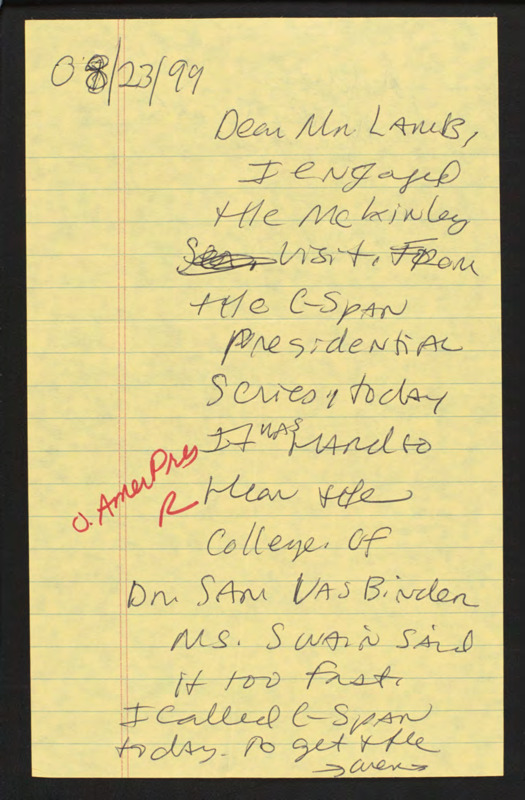 08/23/99
Dear Mr. LAMB,
I engaged
the McKinley
visit. From
the C-SPAN
Presidential
Series, today
It was HARD to
O. AmerPres
R
Hear the
College. Of
Dr. SAM VASBinder
Ms. SWAiN SAid
it too fast.
I Called C-SPAN
today. to get the
→ over →